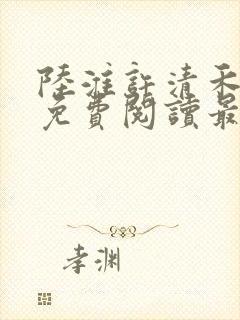 陸淮許清禾
免費閱讀最
孝渊